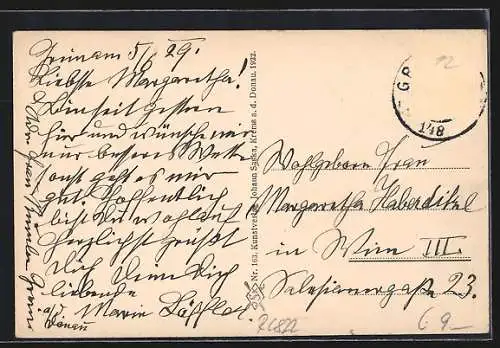 Grein am 5/6 29.
Liebste Margaretha!
Bin seit gestern
hier und wünsche mir
nur besseres Wetter
sonst geht es mir
gut. Hoffentlich
bist Du wohlauf
Herzlichst grüßt
Dich Deine Dich
liebende
Marie
a/d. Donau
Nr. 163. Kunstverlag Johann Sgaan, Krems a. d. Donau. 1922.
GR
1/48
Wohlgeboren Frau
Margaretha Haberditzl
in Wien III.
Salesianergasse 23.